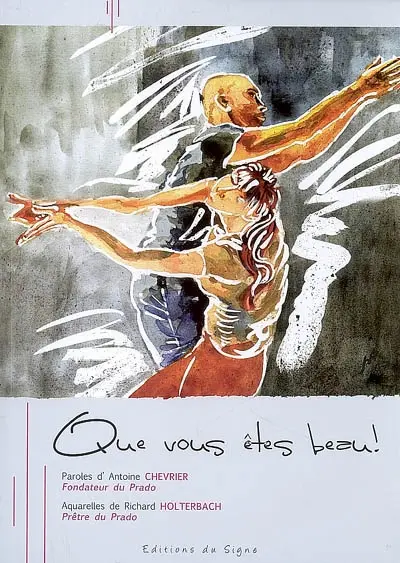 Que vous êtes beau!
Paroles d' Antoine CHEVRIER
Fondateur du Prado
Aquarelles de Richard HOLTERBACH
Prêtre du Prado
Editions du Signe